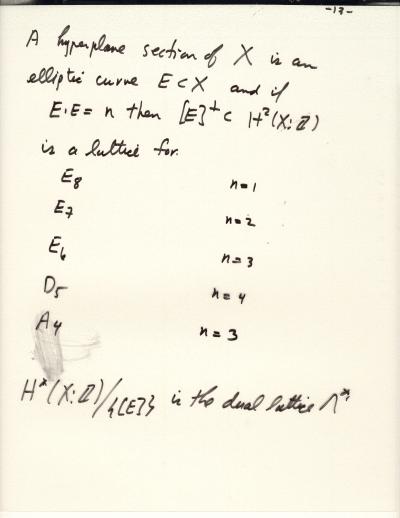 -17-
A hyperplane section of X is an
elliptic curve E ⊂ X and if
E·E = n then [E]^⊥ ⊂ H²(X; Z)
is a lattice for
E₈ n=1
E₇ n=2
E₆ n=3
D₅ n=4
A₄ n=3
H²(X; Z)/{[E]} is the dual lattice Λ*